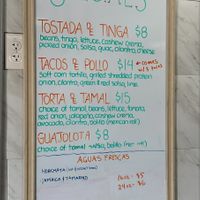 SPECIALS
TOSTADA DE TINGA $8
beans, tinga, lettuce, cashew crema,
pickled onion, salsa, guac, cilantro, cheese
TACOS DE POLLO $14 ← comes w/ 3 tacos
soft corn tortilla, grilled shredded protein
onion, cilantro, green & red salsa, lime
TORTA DE TAMAL $15
choice of tamal, beans, lettuce, tomato,
red onion, jalapeño, cashew crema,
avocado, cilantro, bolillo (mexican roll)
GUATOLOTA $8
choice of tamal, salsa, bolillo (mex. roll)
AGUAS FRESCAS
HORCHATA
JAMAICA & TAMARIND
16oz - $5
24oz - $6